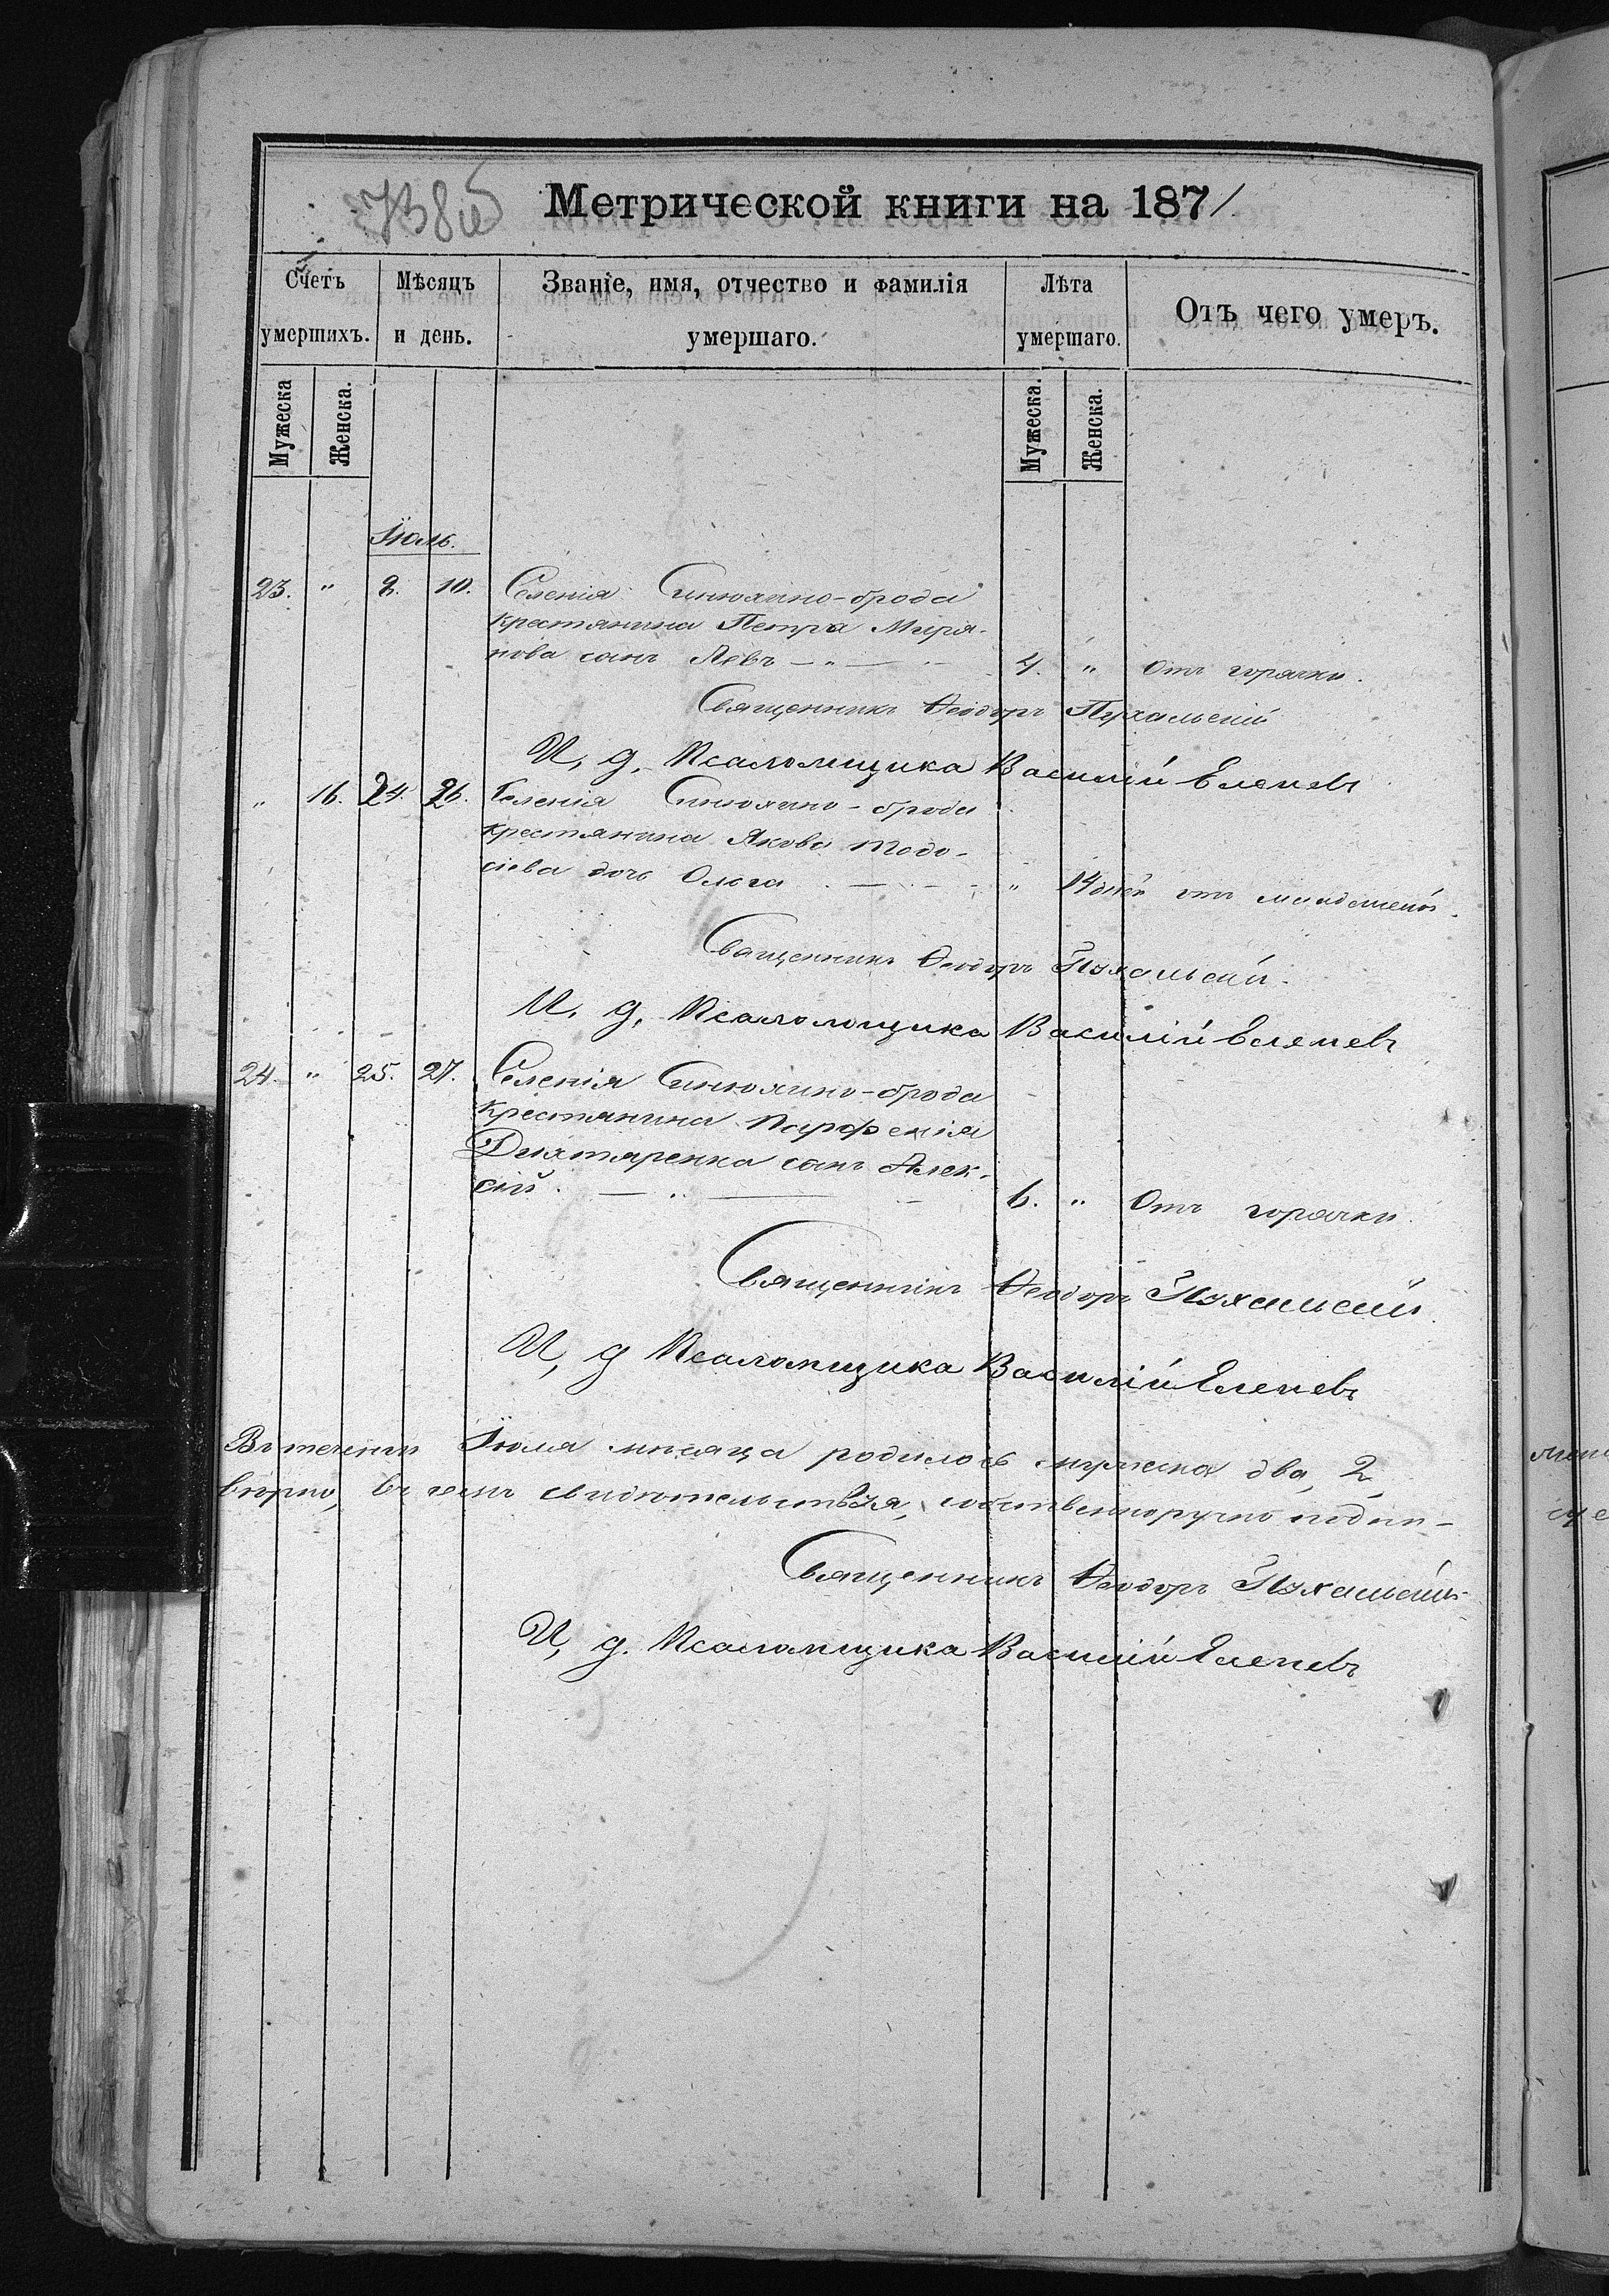 738 об
Метрической книги на 1871
Счетъ умершихъ.
Мѣсяцъ и день.
Званіе, имя, отчество и фамилія умершаго.
Лѣта умершаго.
Отъ чего умеръ.
Мужеска
Женска.
Мужеска.
Женска.
Іюль.
23. " 8. 10. Селенія Синюхино-брода
крестянина Петра Миря-
нова сынъ Левъ — " — 4. " Отъ горячки.
Священникъ Ѳеодоръ Пухальскій
И, д, Псаломщика Василій Еленевъ
" 16. 24. 26. Селенія Синюхино-брода
крестянина Якова Тодо-
сіева дочь Ольга . — . - - " 14 дней отъ
Священникъ Ѳеодоръ Пухальскій.
И, д, Псаломщика Василій Еленевъ
24. " 25. 27. Селенія Синюхино-брода
крестянина Парфенія
Дихтяренка сынъ Алек-
сій . — .. — 6. " Отъ горячки.
Священникъ Ѳеодоръ Пухальскій.
И, д Псаломщика Василій Еленевъ
Въ теченіи Іюля мѣсяца родилось мужеска два, 2,
вѣрно, въ чемъ свидѣтельствуя, собственноручно подпи-
Священникъ Ѳеодоръ Пухальскій
И, д. Псаломщика Василій Еленевъ